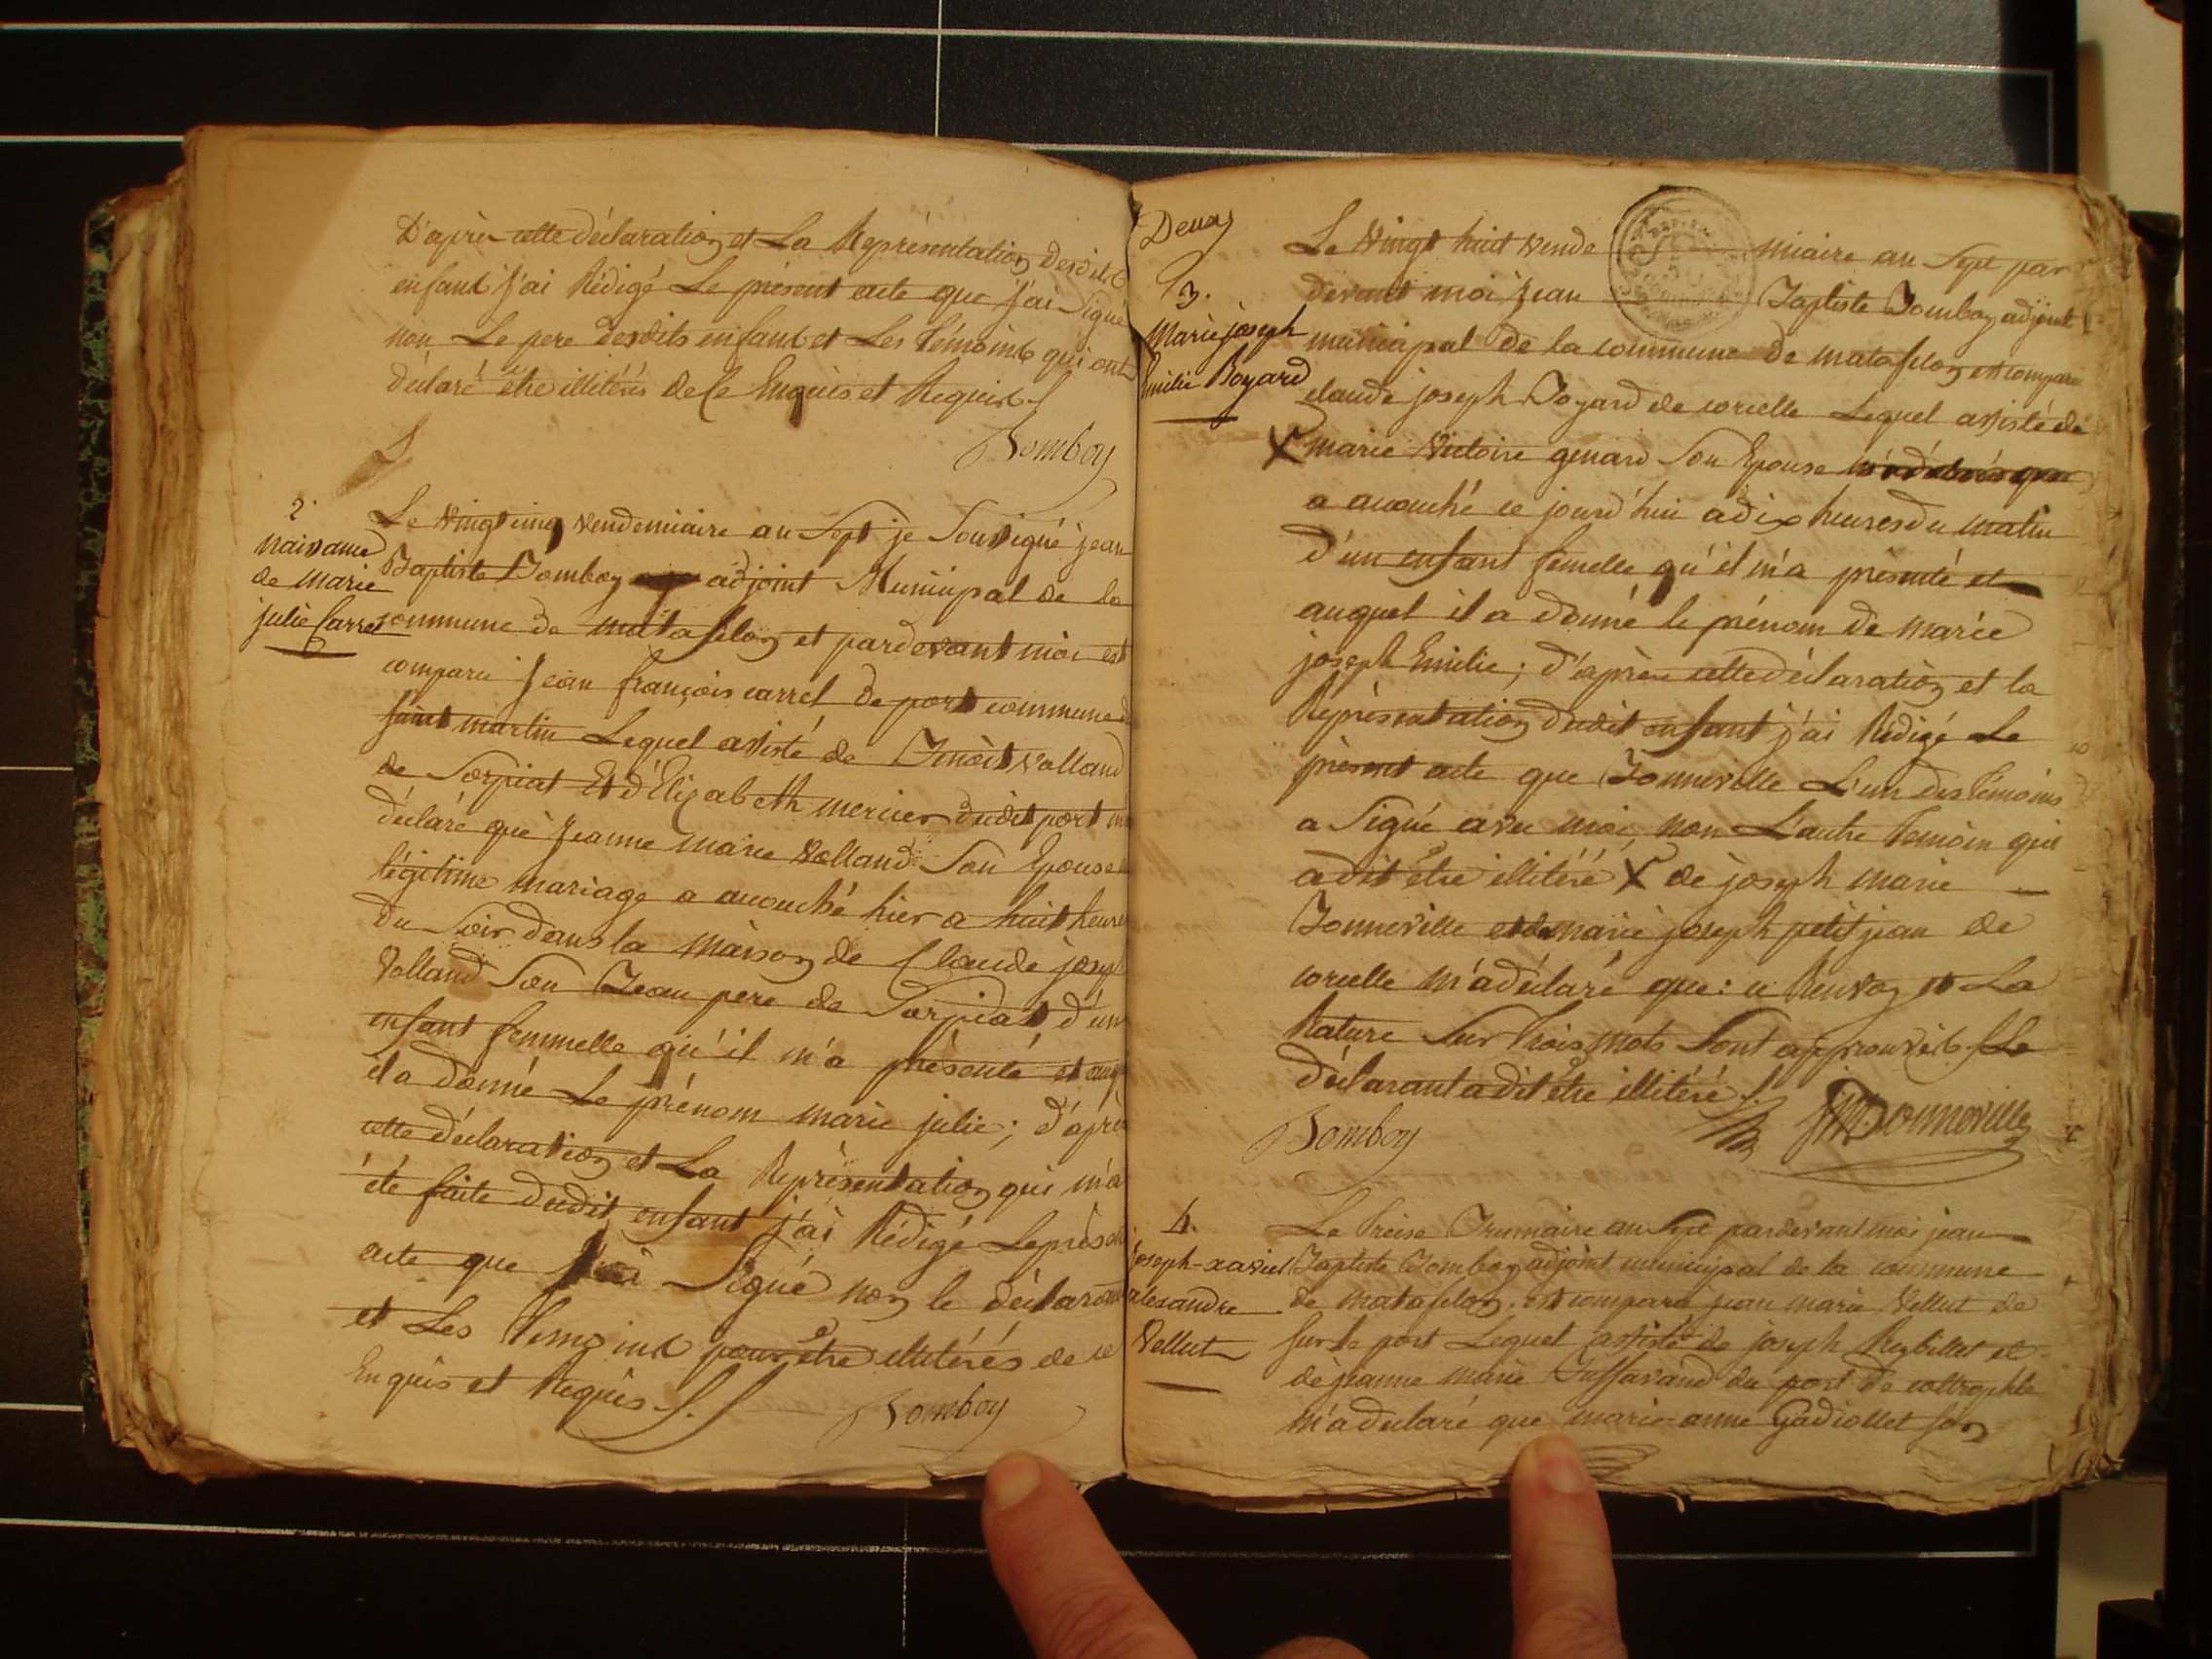 D'après cette déclaration et La Représentation desdits
enfant j'ai Rédigé Le présent acte que j'ai Signé
non Le pere desdits enfant et Les Témoins qui ont
déclaré être illitérés de Ce Enquis et Requis
Bomboy
2.
Naissance
de marie
julie Carrel
Le vingt cinq vendemiaire an Sept je Soussigné jean
Baptiste Bomboy adjoint Municipal de la
commune de matafelon et pardevant moi est
comparu jean françois carrel de port commune
saint martin Lequel assisté de Benoit Volland
de Serpiat Et d'Elizabeth mercier dudit port m'a
déclaré que jeanne marie Volland Son Epouse
légitime mariage a accouché hier a huit heures
du Soir dans la maison de Claude joseph
Volland Son Beau pere de Sorpiat d'un
enfant femmelle qu'il m'a présenté et auq
il a donné Le prénom marie julie ; d'après
cette déclaration et La Représentation qui m'a
été faite dudit enfant j'ai Rédigé Le présent
acte que j'ai Signé non le déclarant
et Les Temoins pour être illitérés de ce
Enquis et Requis
Bomboy
Deux
3.
Marie joseph
Emilie Boyard
Le vingt huit vende miaire an Sept par
devant moi Jean Baptiste Bomboy adjoint
municipal de la commune de matafelon est comparu
claude joseph Boyard de corcelle Lequel assisté de
X marie Victoire genard Son Epouse
a accouché ce jourd'hui a dix heures du matin
d'un enfant femelle qu'il m'a présenté et
auquel il a donné le prénom de marie
joseph Emilie ; d'après cette déclaration et la
Représentation dudit enfant j'ai Rédigé Le
présent acte que Bonneville L'un des témoins
a Signé avec moi, non L'autre Temoin qui
a dit être illitéré X de joseph marie
Bonneville et de marie joseph petitjean de
corcelle m'a déclaré que : ce Renvoy et La
Rature Sur trois mots Sont approuvés Le
déclarant a dit être illitéré
Bomboy
JMBonneville
4.
joseph-xavier
alexandre
Vellut
Le treise Brumaire an Sept pardevant moi jean
Baptiste Bomboy adjoint municipal de la commune
de matafelon, est comparu jean marie Vellut de
Sur le port Lequel assisté de joseph Reybillet et
de jeanne marie Jussavand du port de
m'a déclaré que marie-anne Gadiollet Son